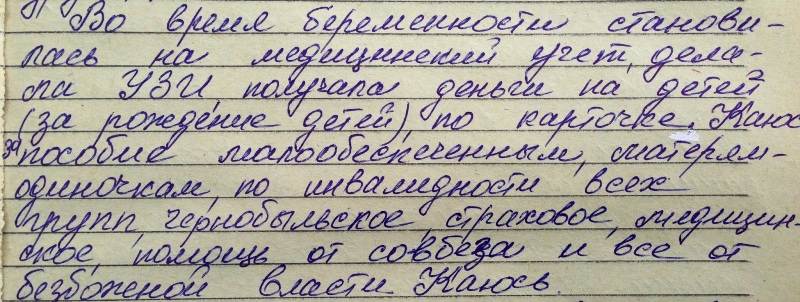 Во время беременности станови-
лась на медицинский учет, дела-
ла УЗИ, получала деньги на детей
(за рождение детей), по карточке. Каюсь
за пособие малообеспеченным, матерям-
одиночкам, по инвалидности всех
групп, чернобыльское, страховое, медицин-
ское, помощь от совбеза и все от
безбожной власти Каюсь.